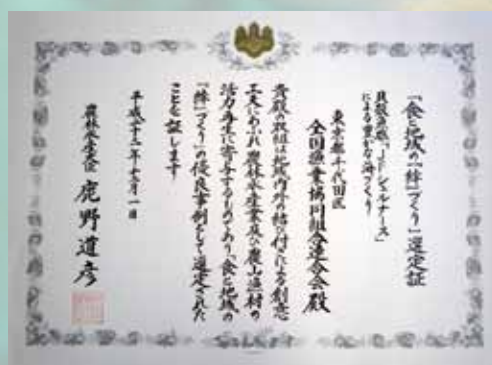 「食と地域の『絆』づくり」選定証
貝殻魚礁「JFシェルナース」
による豊かな海づくり
東京都千代田区
全国漁業協同組合連合会 殿
貴殿の取組は地域内外の結び付きによる創意
工夫にあふれ農林水産業及び農山漁村の
活力再生に寄与するものであり「食と地域の
『絆』づくり」の優良事例として選定された
ことを証します
平成二十二年十二月一日
農林水産大臣 鹿野道彦